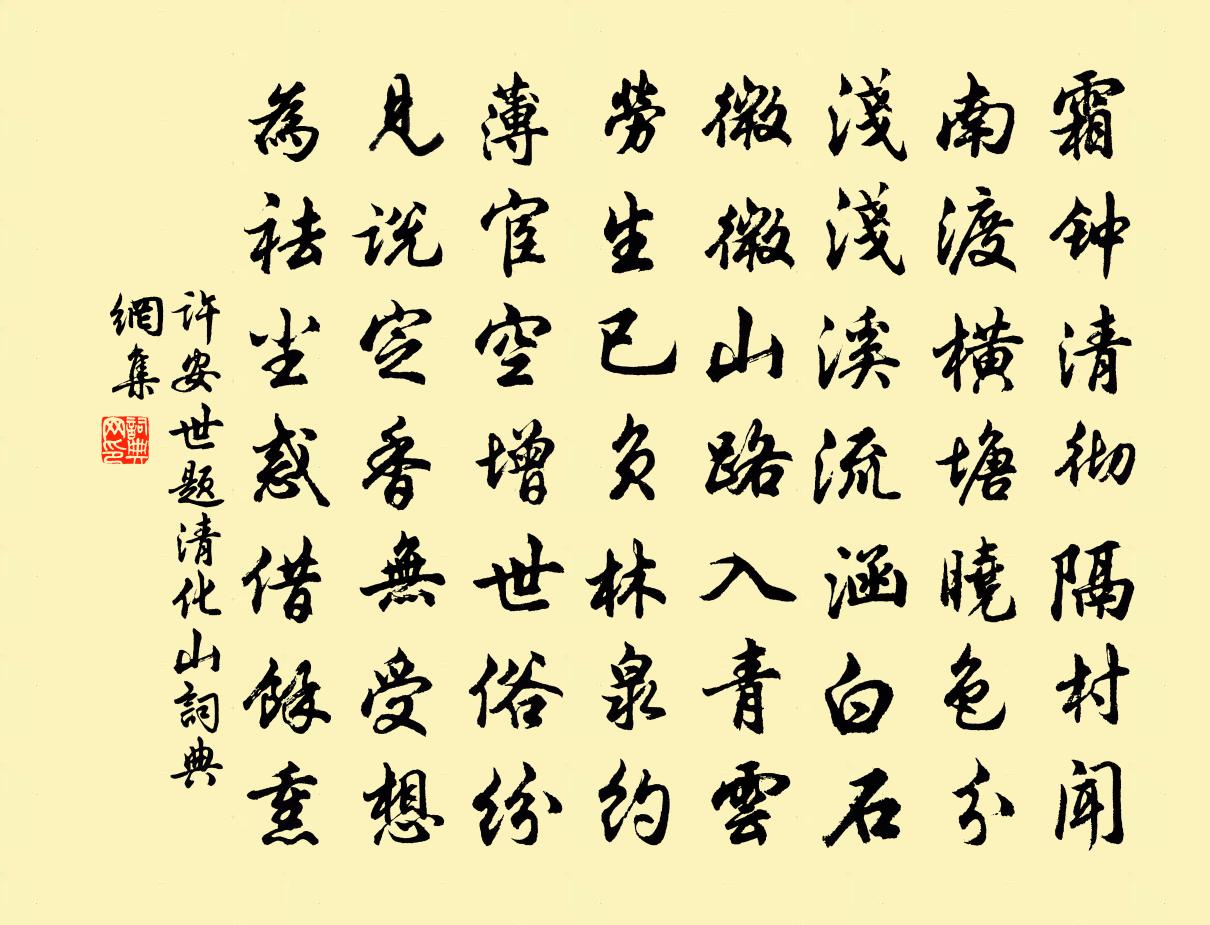 霜钟清彻隔村闻
南渡横塘曉色分
淺淺溪流涵白石
微微山路入青雲
勞生已负林泉约
薄宦空增世俗纷
見说定香無受想
為袪尘惑借餘熏
许安世题清化山詞典
網集
詞典
网印